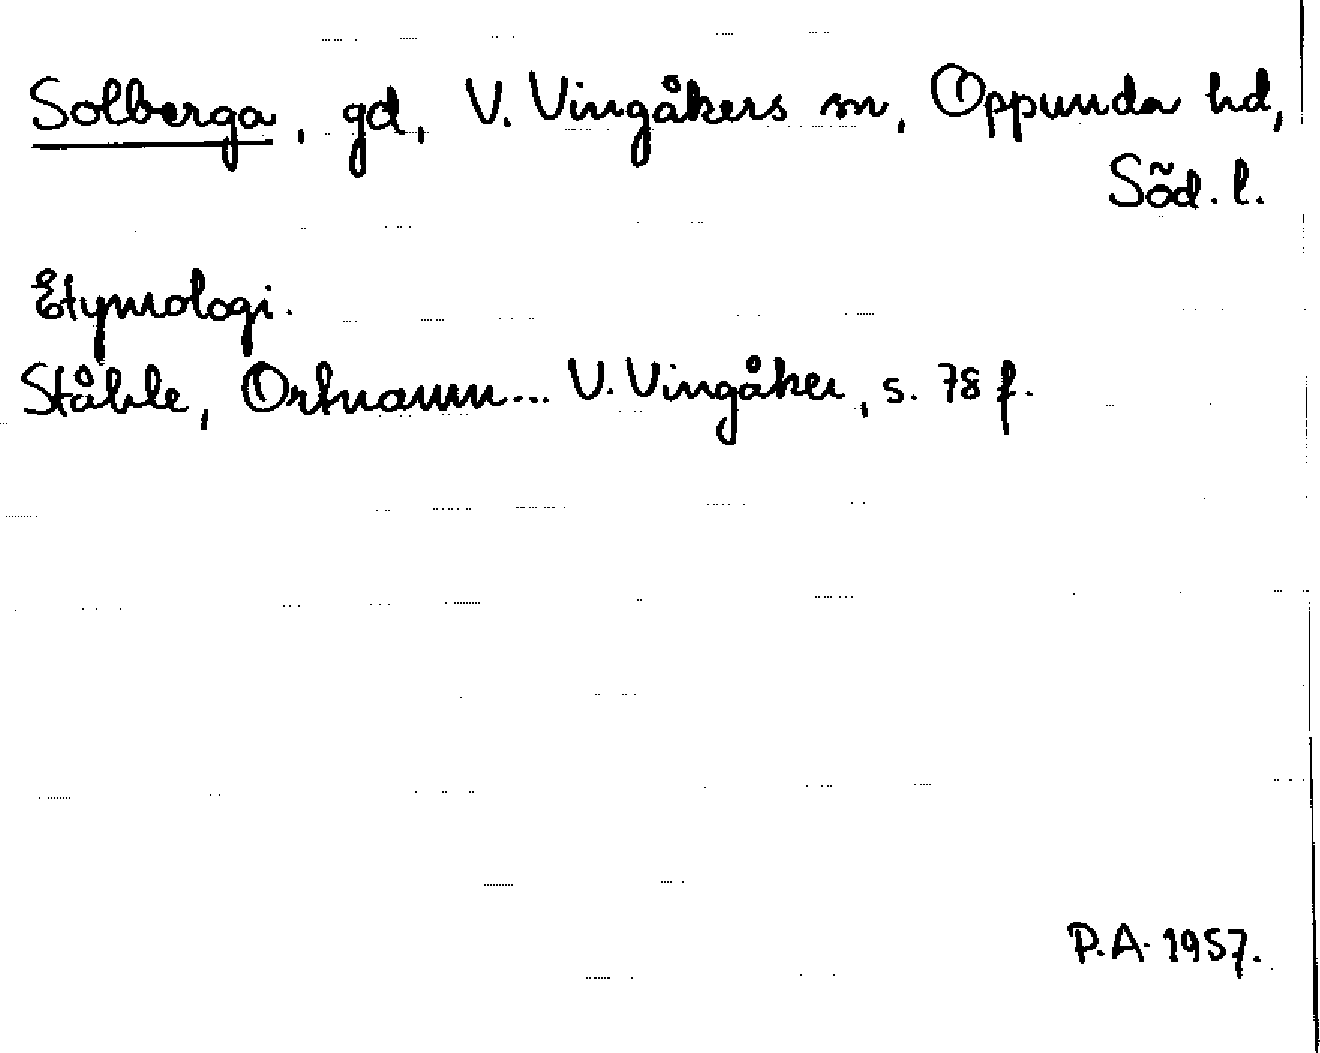 Solberga, gd, V. Vingåkers sn, Oppunda hd,
Söd. l.
Etymologi.
Ståhle, Ortnamn... V. Vingåker, s. 78 f.
P.A. 1957.